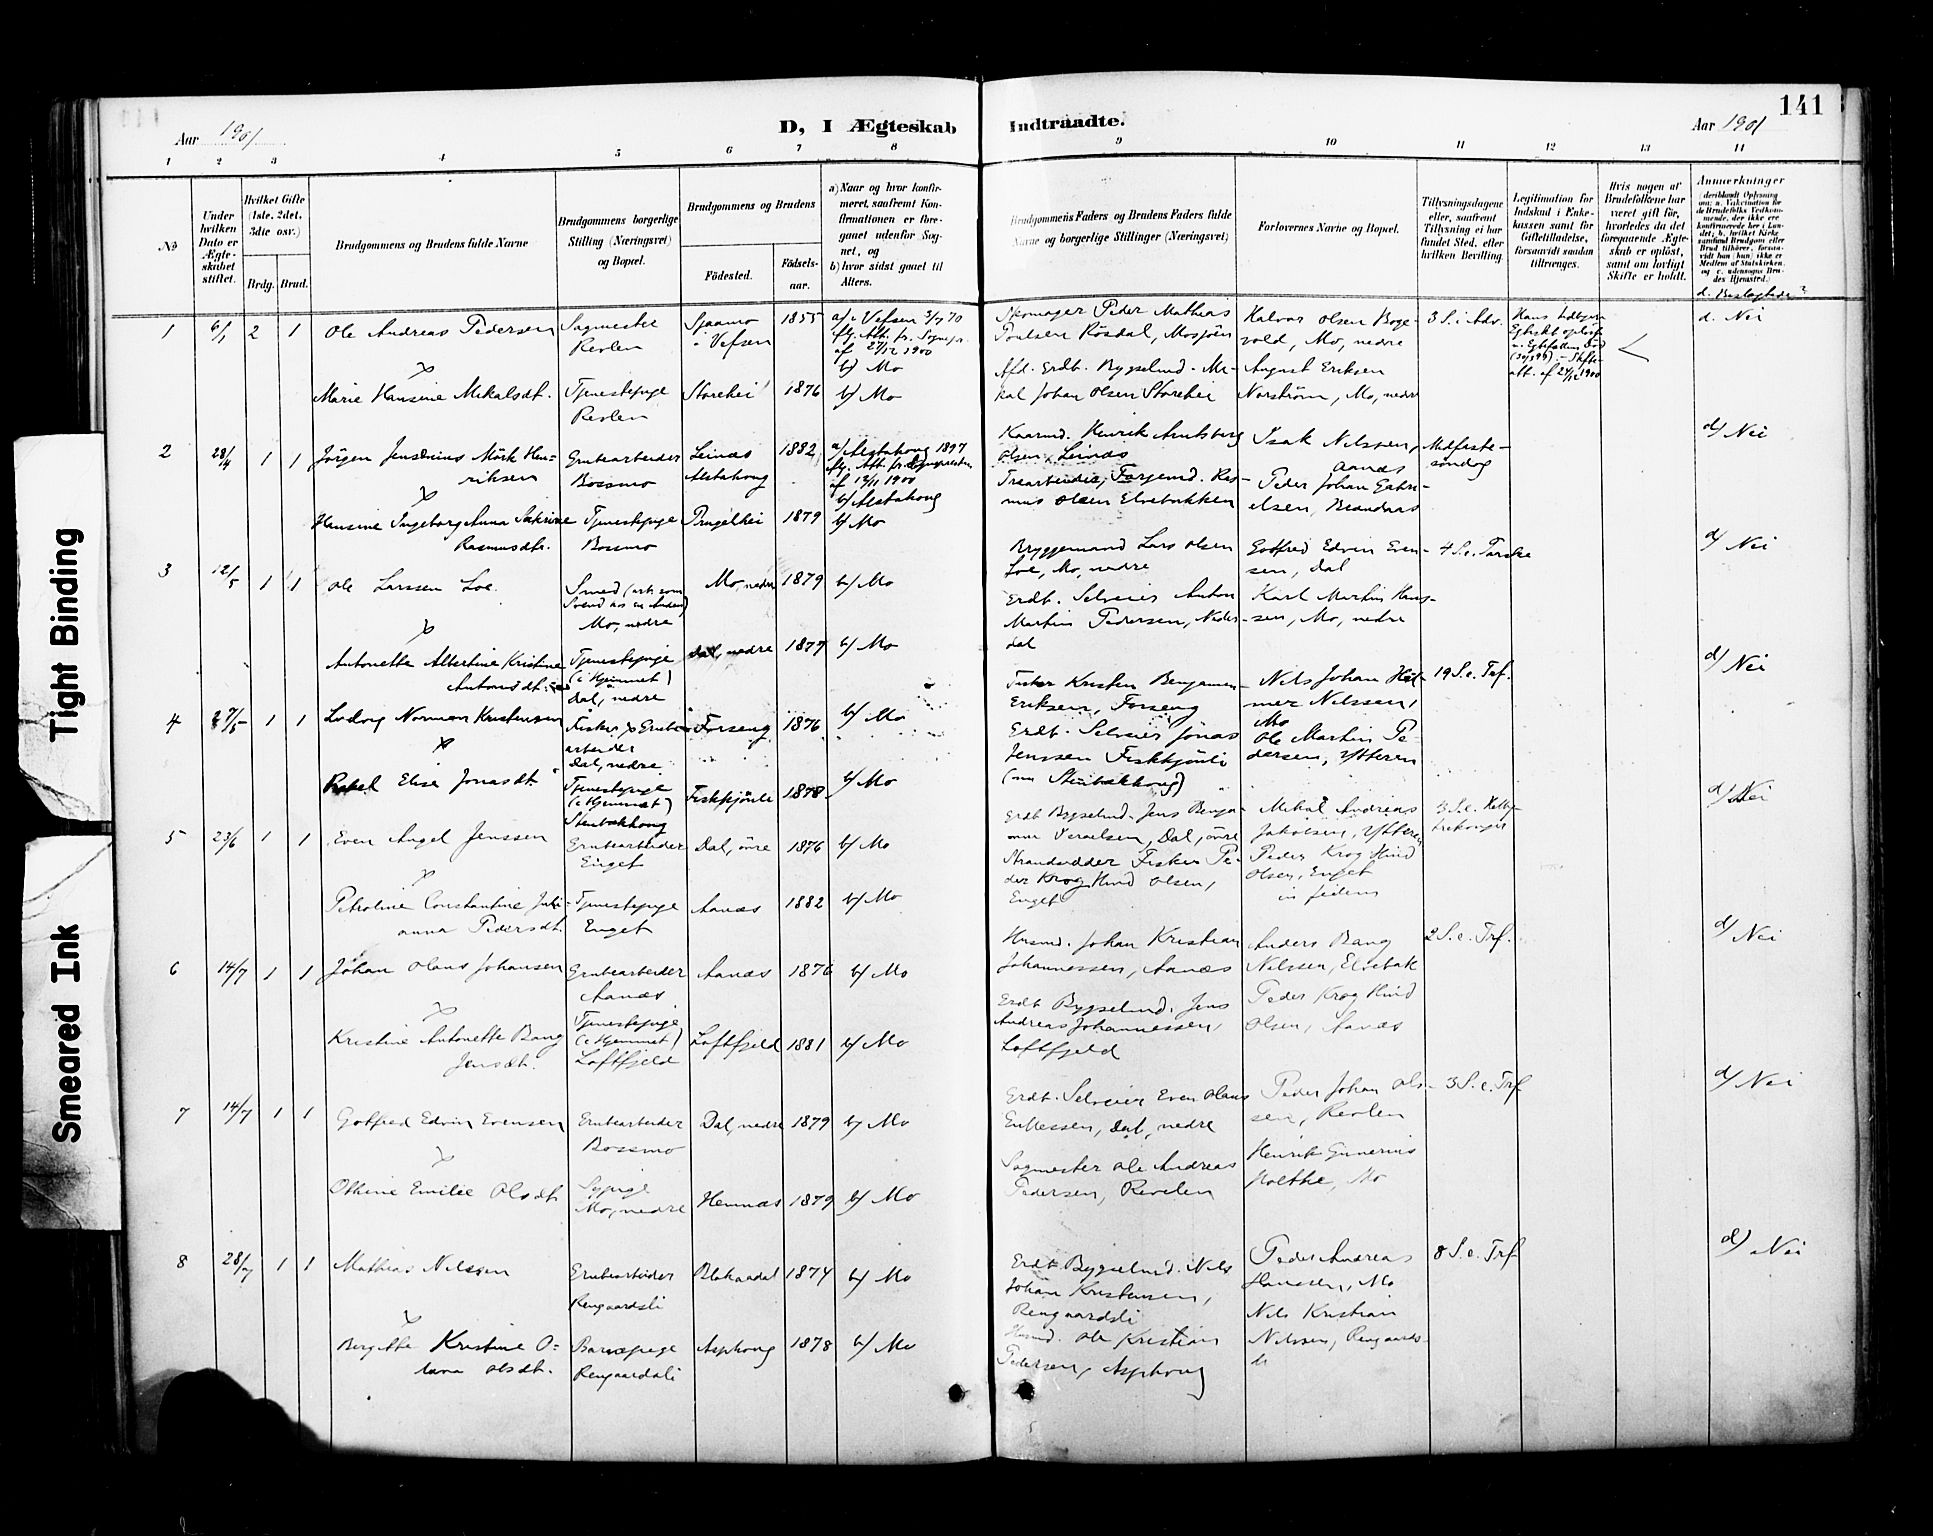 141
Aar 1901
D, I Ægteskab
Indtraadte.
Aar 1901
1 2 3 4 5 6 7 8 9 10 11 12 13 14
No
Under hvilken Dato er Ægteskabet stiftet.
Hvilket Gifte (1ste, 2det, 3die osv.)
Brdg. Brud.
Brudgommens og Brudens fulde Navne
Brudgommens borgerlige Stilling (Næringsvei) og Bopæl.
Brudgommens og Brudens
Födested.
Födsels-aar.
a) Naar og hvor konfirmeret, saafremt Konfirmationen er foregaaet udenfor Sognet, og
b) hvor sidst gaaet til Alters.
Brudgommens Faders og Brudens Faders fulde Navne og borgerlige Stillinger (Næringsvei)
Forlovernes Navne og Bopæl.
Tillysningsdagene eller, saafremt Tillysning ei har fundet Sted, efter hvilken Bevilling.
Legitimation for Indskud i Enkekassen samt for Giftetilladelse, forsaavidt saadan tiltrænges.
Hvis nogen af Brudefolkene har været gift før, hvorledes da det foregaaende Ægteskab er opløst, samt om lovligt Skifte er holdt.
Anmerkninger
1 6/1 2 1 Ole Andreas Pedersen
Sagmester
Revlen
Sjaamo
i Vefsen
1855
a/ i Vefsen 3/7 70
af 27/12 1900
b) Mo
Skomager Peder Mathias
Poulsen Rösdal, Mosjöen
Halvor Olsen Boge-
vold, Mo, nedre
3 S. i Adv.
d. Nei
Marie Hansine Mikalsdt.
Tjenestepige
Revlen
Storehei
1876
b/ Mo
Afd. Erdt. Bygselmd. Mi-
kal Johan Olsen Storehei
August Eriksen
Norström, Mo, nedre
2 28/4 1 1 Jörgen Jenseius Mörk Hen-
riksen
Grubearbeider
Bossmo
Leinæs
Alstahoug
1882
a/ Alstahoug 1897
af 12/11 1900
b/ Alstahoug
Kaarmd. Henrik Arntsberg
Olsen Leinæs
Isak Nilssen,
Aanæs
Midfaste-
søndag
d/ Nei
Hansine Ingeborg Anna Sakrine
Rasmusdtr.
Tjenestepige
Bossmo
1879
b/ Mo
Træarbeider, Færgemd. Ras-
mus Olsen Elvebakken
Peder Johan Gabri-
elsen, Brandaas
3 12/5 1 1 Ole Larssen Loe.
Smed (arb. som
Svend hos en Anden)
Mo, nedre
Mo, nedre
1879
b/ Mo
Bryggemand Lars Olsen
Loe, Mo, nedre
Gotfred Edvin Even-
sen, Dal
4 S. e. Paaske
d/ Nei
Antonette Albertine Kristine
Antonsdt.
Tjenestepige
(i Hjemmet)
Dal, nedre
Dal, nedre
1877
b/ Mo
Erdt. Selveier Anton
Martin Pedersen, Neder-
dal
Karl Martin Hans-
sen, Mo, nedre
4 27/5 1 1 Ludvig Norman Kristensen
Fisker & Grube-
arbeider
Dal, nedre
Forseng
1876
b/ Mo
Fisker Kristen Benjamin
Eriksen, Forseng
Nils Johan Hil-
mer Nilssen,
Mo
d/ Nei
Rakel Elise Jonasdt.
Tjenestepige
(i Hjemmet)
Stenbækhoug
Fiskkjönli
1878
b/ Mo
Erdt. Selveier Jonas
Jenssen Fiskkjönli
(nu Stenbækhoug)
Ole Martin Pe-
dersen, Ytteren
5 23/6 1 1 Even Angel Jenssen
Grubearbeider
Enget
Dal, övre
1876
b/ Mo
Erdt Bygselmd. Jens Benja-
min Iversen, Dal, övre
Mikal Andreas
Jakobsen, Ytteren
3 S. e. Hellig-
trekonger
d/ Nei
Petroline Constantine Juli-
anna Pedersdt.
Tjenestepige
Enget
Aanæs
1882
b/ Mo
Strandsidder Fisker Pe-
der Krog Hind Olsen,
Enget
Peder Krog Hind
Olsen, Enget
in fidem
6 14/7 1 1 Johan Olaus Johansen
Grubearbeider
Aanæs
Aanæs
1876
b/ Mo
Husmd. Johan Kristian
Johannessen, Aanæs
Anders Bang
Nilssen, Elvebak
2 S. e. Trf.
d/ Nei
Kristine Antonette Bang
Jensdt.
Tjenestepige
(i Hjemmet)
Loftfjeld
Loftfjeld
1881
b/ Mo
Erdt Bygselmd. Jens
Andreas Johannessen,
Loftfjeld
Peder Krog Hind
Olsen, Aanæs
7 14/7 1 1 Gotfred Edvin Evensen
Grubearbeider
Bossmo
Dal, nedre
1879
b/ Mo
Erdt. Selveier Even Olaus
Dal, nedre
Peder Johan Ol-
sen, Revlen
3 S. e. Trf
d/ Nei
Othine Emilie Olsdt.
Sypige
Mo, nedre
Hemnæs
1879
b/ Mo
Sagmester Ole Andreas
Pedersen, Revelen
Henrik Gunerius
Holthe, Mo
8 28/7 1 1 Mathias Nilssen
Grubearbeider
Rengaardsli
Blakaadal
1874
b/ Mo
Erdt Bygselmd. Nils
Johan Kristensen,
Rengaardsli
Peder Andreas
Hanssen, Mo
8 S. e. Trf
d/ Nei
Birgitte Kristine O-
lava Olsdt.
Barnepige
Rengaardsli
Asphoug
1878
b/ Mo
Husmd. Ole Kristian
Pedersen, Asphoug
Nils Kristian
Nilssen, Rengaards-
li
Tight Binding
Smeared Ink